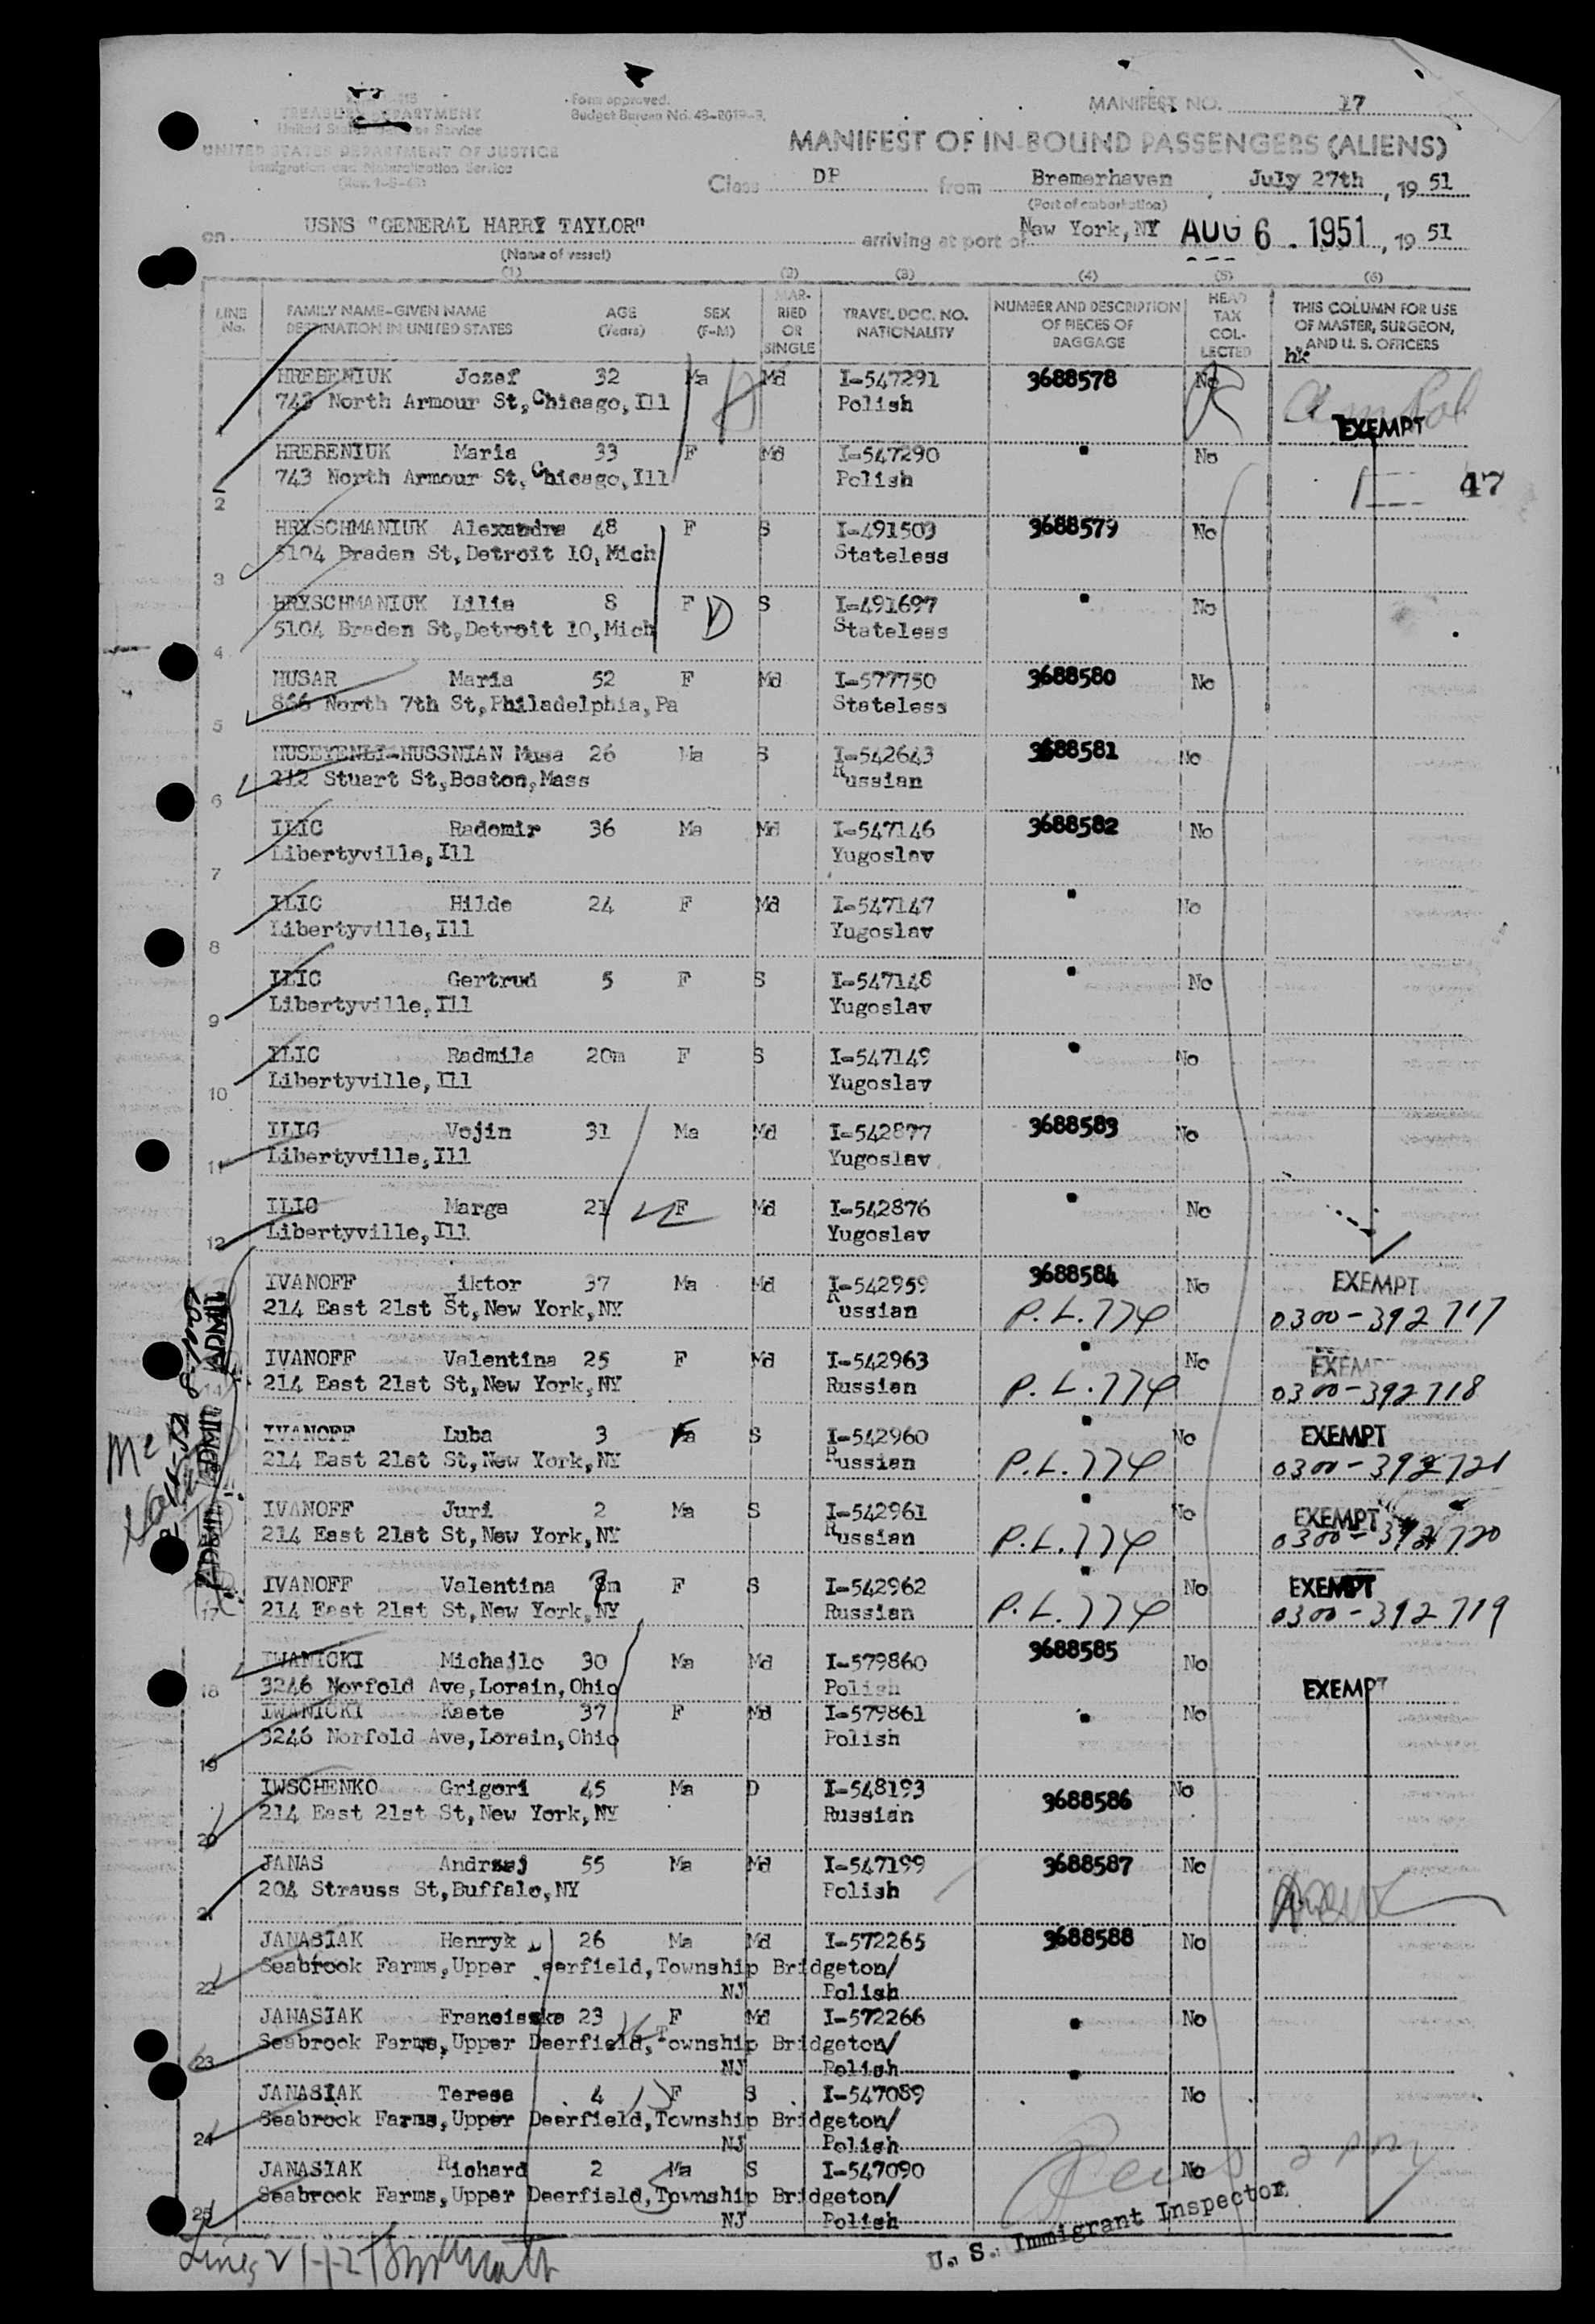 MANIFEST NO. 17
TREASURY DEPARTMENT
Form approved.
Budget Bureau No. 43-R019-3.
UNITED STATES DEPARTMENT OF JUSTICE
Immigration and Naturalization Service
MANIFEST OF IN-BOUND PASSENGERS (ALIENS)
Class DP from Bremerhaven, July 27th, 19 51
(Port of embarkation)
on USNS "GENERAL HARRY TAYLOR" arriving at port of New York, NY AUG 6 - 1951, 19 51
(Name of vessel)
(1) (2) (3) (4) (5) (6)
LINE No. FAMILY NAME-GIVEN NAME DESTINATION IN UNITED STATES AGE (Years) SEX (F-M) MARRIED OR SINGLE TRAVEL DOC. NO. NATIONALITY NUMBER AND DESCRIPTION OF PIECES OF BAGGAGE HEAD TAX COLLECTED THIS COLUMN FOR USE OF MASTER, SURGEON, AND U. S. OFFICERS
hk
HREBENIUK Jozef 32 Ma Md I-547291 3688578 No
743 North Armour St, Chicago, Ill Polish
EXEMPT
HREBENIUK Maria 33 F Md I-547290 " No
743 North Armour St, Chicago, Ill Polish 47
2
HRYSCHMANIUK Alexandra 48 F S I-491503 3688579 No
5104 Braden St, Detroit 10, Mich Stateless
3
HRYSCHMANIUK Lilia 8 F S I-491697 " No
5104 Braden St, Detroit 10, Mich Stateless
4
HUSAR Maria 52 F Md I-577750 3688580 No
866 North 7th St, Philadelphia, Pa Stateless
5
HUSEYENLI-HUSSNIAN Musa 26 Ma S I-542643 3688581 No
212 Stuart St, Boston, Mass Russian
6
ILIC Radomir 36 Ma Md I-547146 3688582 No
Libertyville, Ill Yugoslav
7
ILIC Hilde 24 F Md I-547147 " No
Libertyville, Ill Yugoslav
8
ILIC Gertrud 5 F S I-547148 " No
Libertyville, Ill Yugoslav
9
ILIC Radmila 20m F S I-547149 " No
Libertyville, Ill Yugoslav
10
ILIC Vojin 31 Ma Md I-542877 3688583 No
11 Libertyville, Ill Yugoslav
ILIC Marga 21 F Md I-542876 " No
12 Libertyville, Ill Yugoslav
IVANOFF Viktor 37 Ma Md I-542959 3688584 No EXEMPT
214 East 21st St, New York, NY Russian P.L. 774 0300-392717
IVANOFF Valentina 25 F Md I-542963 " No EXEMPT
14 214 East 21st St, New York, NY Russian P.L. 774 0300-392718
IVANOFF Luba 3 F S I-542960 " No EXEMPT
214 East 21st St, New York, NY Russian P.L. 774 0300-392721
IVANOFF Juri 2 Ma S I-542961 " No EXEMPT
214 East 21st St, New York, NY Russian P.L. 774 0300-392720
IVANOFF Valentina 8m F S I-542962 " No EXEMPT
17 214 East 21st St, New York, NY Russian P.L. 774 0300-392719
IWANICKI Michajlo 30 Ma Md I-579860 3688585 No
18 3246 Norfold Ave, Lorain, Ohio Polish EXEMPT
IWANICKI Kaete 37 F Md I-579861 " No
3246 Norfold Ave, Lorain, Ohio Polish
19
IWSCHENKO Grigori 45 Ma D I-548193 3688586 No
214 East 21st St, New York, NY Russian
20
JANAS Andrzej 55 Ma Md I-547199 3688587 No
204 Strauss St, Buffalo, NY Polish
21
JANASIAK Henryk 26 Ma Md I-572265 3688588 No
Seabrook Farms, Upper eerfield, Township Bridgeton/
22 NJ Polish
JANASIAK Franciszka 23 F Md I-572266 " No
Seabrook Farms, Upper Deerfield, Township Bridgeton/
23 NJ Polish
JANASIAK Teresa 4 F S I-547089 " No
Seabrook Farms, Upper Deerfield, Township Bridgeton/
24 NJ Polish
JANASIAK Richard 2 Ma S I-547090 No
Seabrook Farms, Upper Deerfield, Township Bridgeton/
25 NJ Polish
U. S. Immigrant Inspector